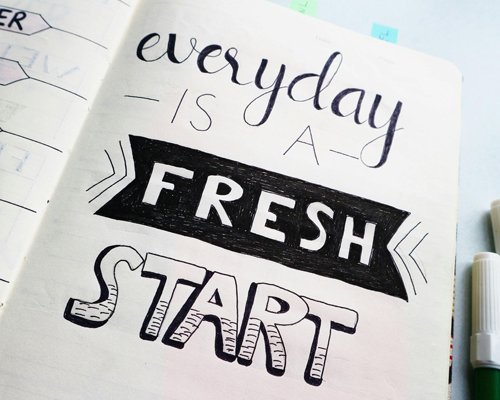 ER
everyday
— IS A —
FRESH
START